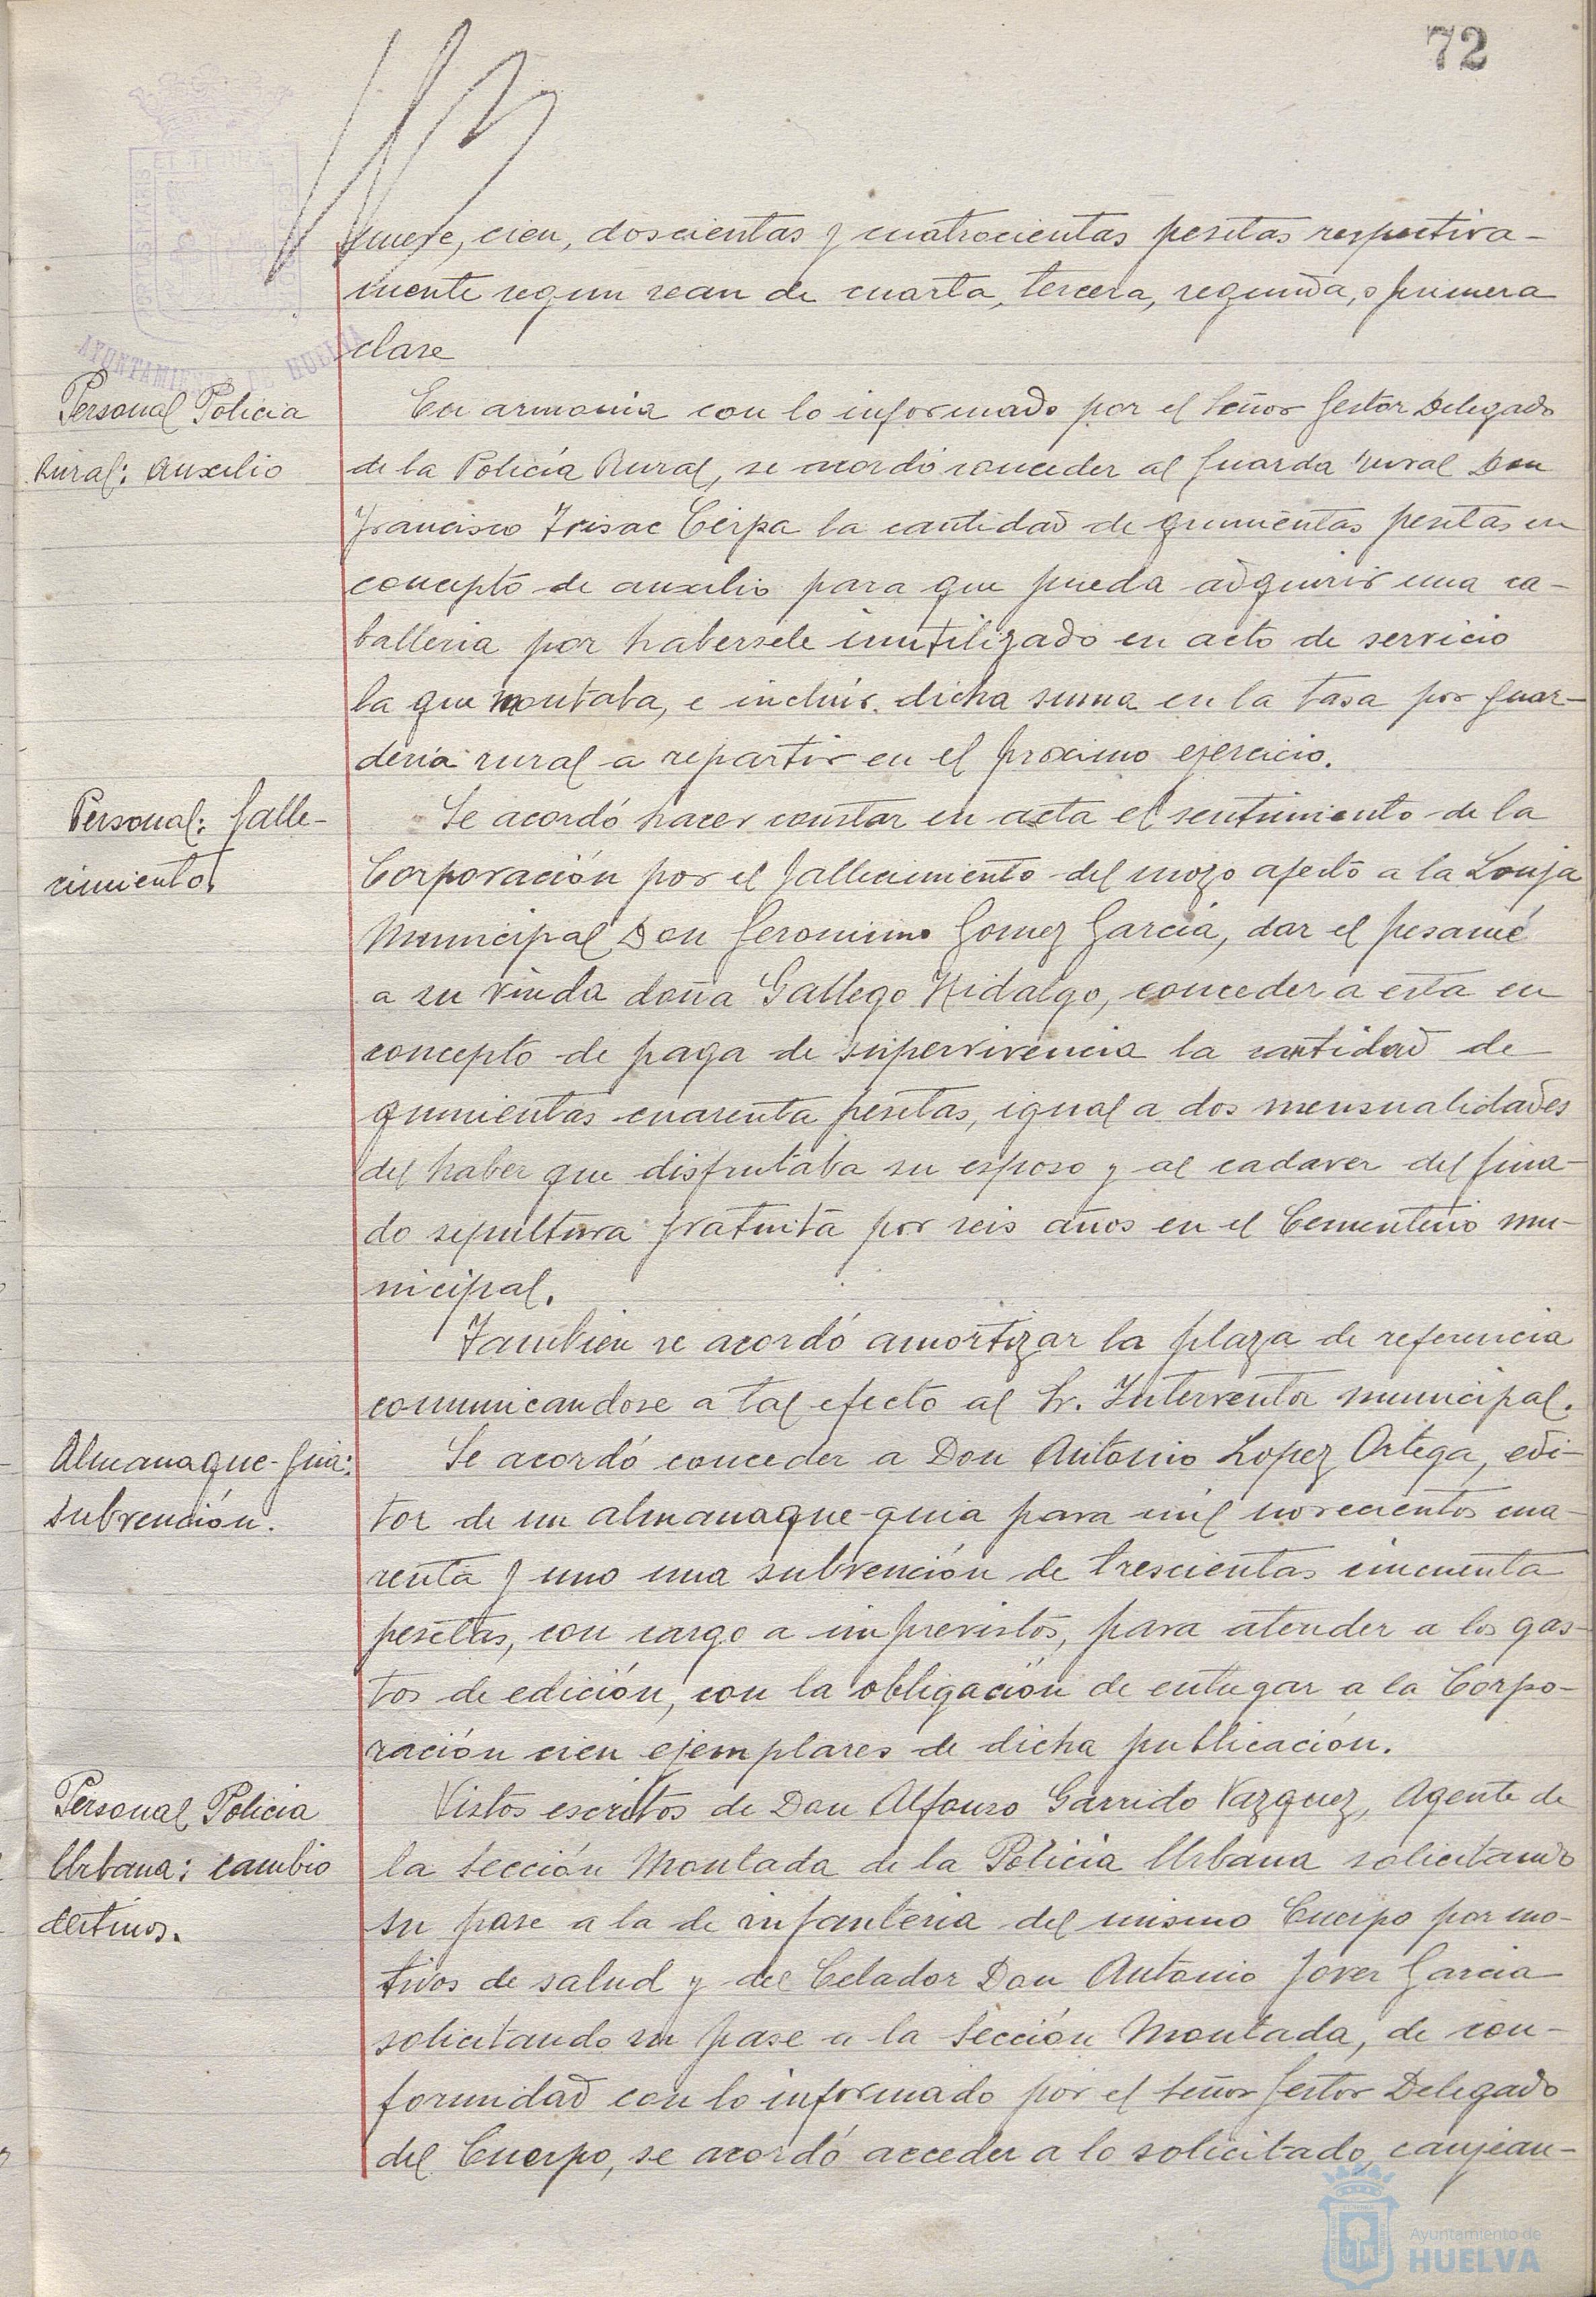 72
cien, doscientas y cuatrocientas pesetas respectiva-
mente segun sean de cuarta, tercera, segunda, o primera
clase
Personal Policia
Rural: Auxilio
En armonia con lo informado por el Señor Gestor Delegado
de la Policía Rural, se acordó conceder al Guarda rural Don
Francisco la cantidad de quinientas pesetas en
concepto de auxilio para que pueda adquirir una ca-
balleria por habersele inutilizado en acto de servicio
la que montaba, e incluir dicha suma en la tasa por guar-
dería rural a repartir en el proximo ejercicio.
Personal: falle-
cimiento
Se acordó hacer constar en acta el sentimiento de la
Corporación por el fallecimiento del mozo afecto a la Lonja
Municipal Don Geronimo Gomez Garcia, dar el pesame
a su viuda doña Gallego Hidalgo, conceder a esta en
concepto de paga de supervivencia la cantidad de
quinientas cuarenta pesetas, igual a dos mensualidades
del haber que disfrutaba su esposo y al cadaver del fina-
do sepultura gratuita por seis años en el Cementerio mu-
nicipal.
Tambien se acordó amortizar la plaza de referencia
comunicandose a tal efecto al Sr. Interventor municipal.
Almanaque-guia:
subvención.
Se acordó conceder a Don Antonio Lopez Ortega, edi-
tor de un almanaque-guia para mil novecientos cua-
renta y uno una subvención de trescientas cincuenta
pesetas, con cargo a imprevistos, para atender a los gas-
tos de edición, con la obligación de entregar a la Corpo-
ración cien ejemplares de dicha publicación.
Personal Policia
Urbana: cambio
destinos.
Vistos escritos de Don Alfonso Garrido Vazquez, Agente de
la Sección Montada de la Policia Urbana solicitando
su pase a la de infanteria del mismo Cuerpo por mo-
tivos de salud y del Celador Don Antonio Jover Garcia
solicitando su pase a la Sección Montada, de con-
formidad con lo informado por el Señor Gestor Delegado
del Cuerpo, se acordó acceder a lo solicitado, canjean-
AYUNTAMIENTO DE HUELVA
Ayuntamiento de
HUELVA